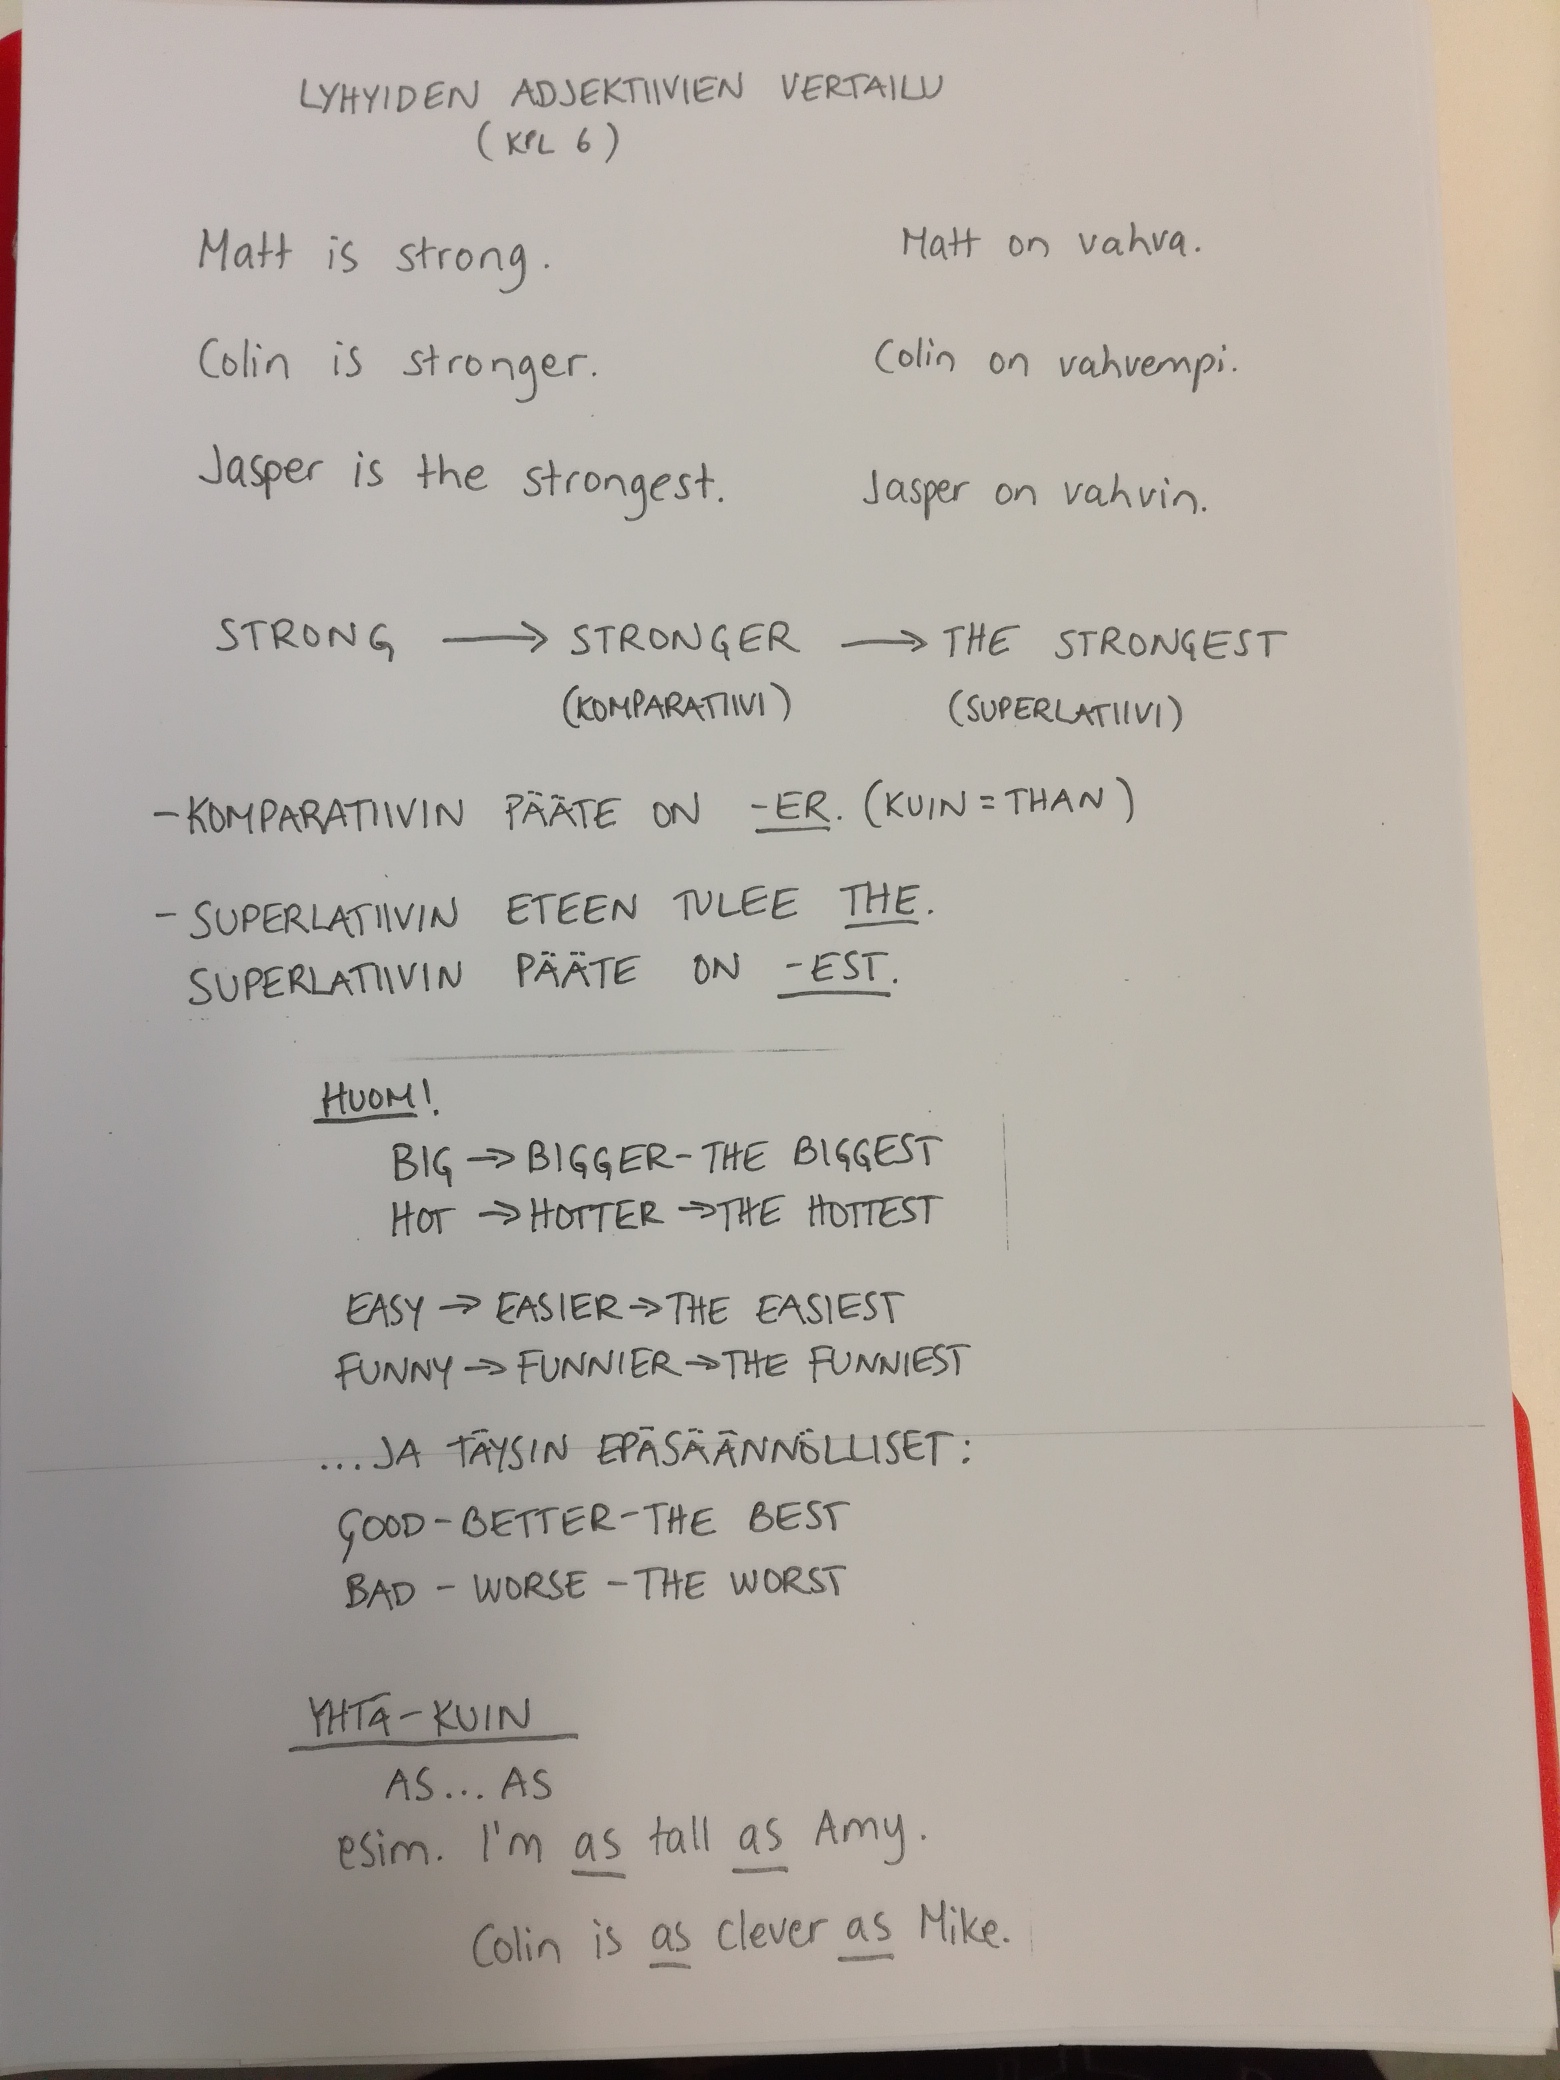 LYHYIDEN ADJEKTIIVIEN VERTAILU
(KPL 6)
Matt is strong. Matt on vahva.
Colin is stronger. Colin on vahvempi.
Jasper is the strongest. Jasper on vahvin.
STRONG → STRONGER → THE STRONGEST
(KOMPARATIIVI) (SUPERLATIIVI)
- KOMPARATIIVIN PÄÄTE ON -ER. (KUIN = THAN)
- SUPERLATIIVIN ETEEN TULEE THE.
SUPERLATIIVIN PÄÄTE ON -EST.
HUOM!
BIG → BIGGER - THE BIGGEST
HOT → HOTTER → THE HOTTEST
EASY → EASIER → THE EASIEST
FUNNY → FUNNIER → THE FUNNIEST
...JA TÄYSIN EPÄSÄÄNNÖLLISET:
GOOD - BETTER - THE BEST
BAD - WORSE - THE WORST
YHTÄ - KUIN
AS... AS
esim. I'm as tall as Amy.
Colin is as clever as Mike.